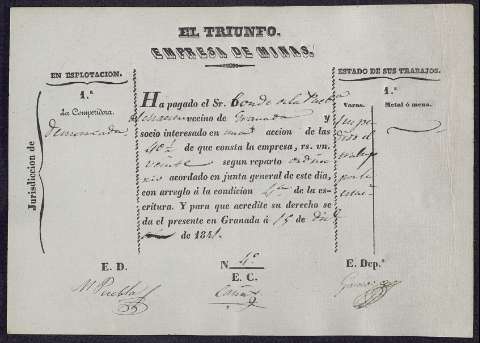 EL TRIUNFO.
EMPRESA DE MINAS.
EN ESPLOTACION.
1.ª
La Compenidora.
demarcada
Jurisdiccion de
Ha pagado el Sr. Conde de la Puebla
vecino de Granada y
socio interesado en una accion de las
40½ de que consta la empresa, rs. vn.
veinte segun reparto ordina
rio acordado en junta general de este dia,
con arreglo á la condicion 4ª de la es-
critura. Y para que acredite su derecho se
da el presente en Granada á 15 de
de 1841.
ESTADO DE SUS TRABAJOS.
1.ª
Varas.
Metal ó mena.
por la
E. D.
N. 4º
E. C.
E. Dep.º
M. Puebla